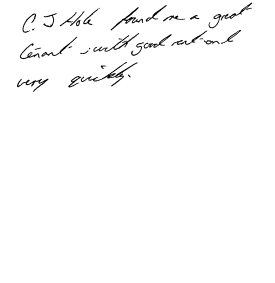 C.J Hole found me a great
tenant with good rent and
very quickly.